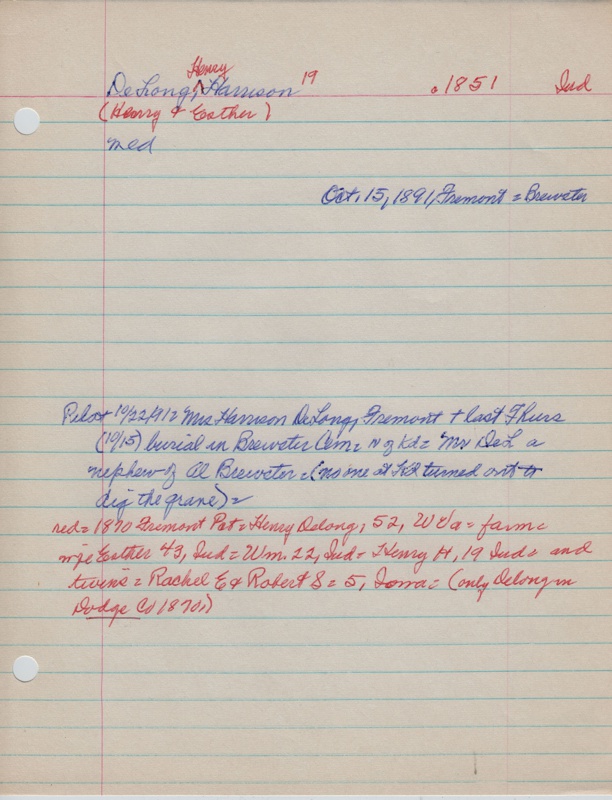 DeLong, Henry Harrison 19 c 1851 Ind
(Henry & Esther)
med
Oct. 15, 1891, Fremont = Brewster
Pilot 10/22/91 = Mrs Harrison DeLong, Fremont + last Thurs
(10/15) burial in Brewster Cem = N of Kd = Mr DeL a
nephew of Al Brewster = (no one at turned out to
dig the grave) =
red = 1870 Fremont Pct = Henry Delong, 52, W Va = farm =
wife Esther 43, Ind = Wm. 22, Ind = Henry H, 19 Ind = and
twins = Rachel E & Robert S = 5, Iowa = (only Delong in
Dodge Co 1870.)